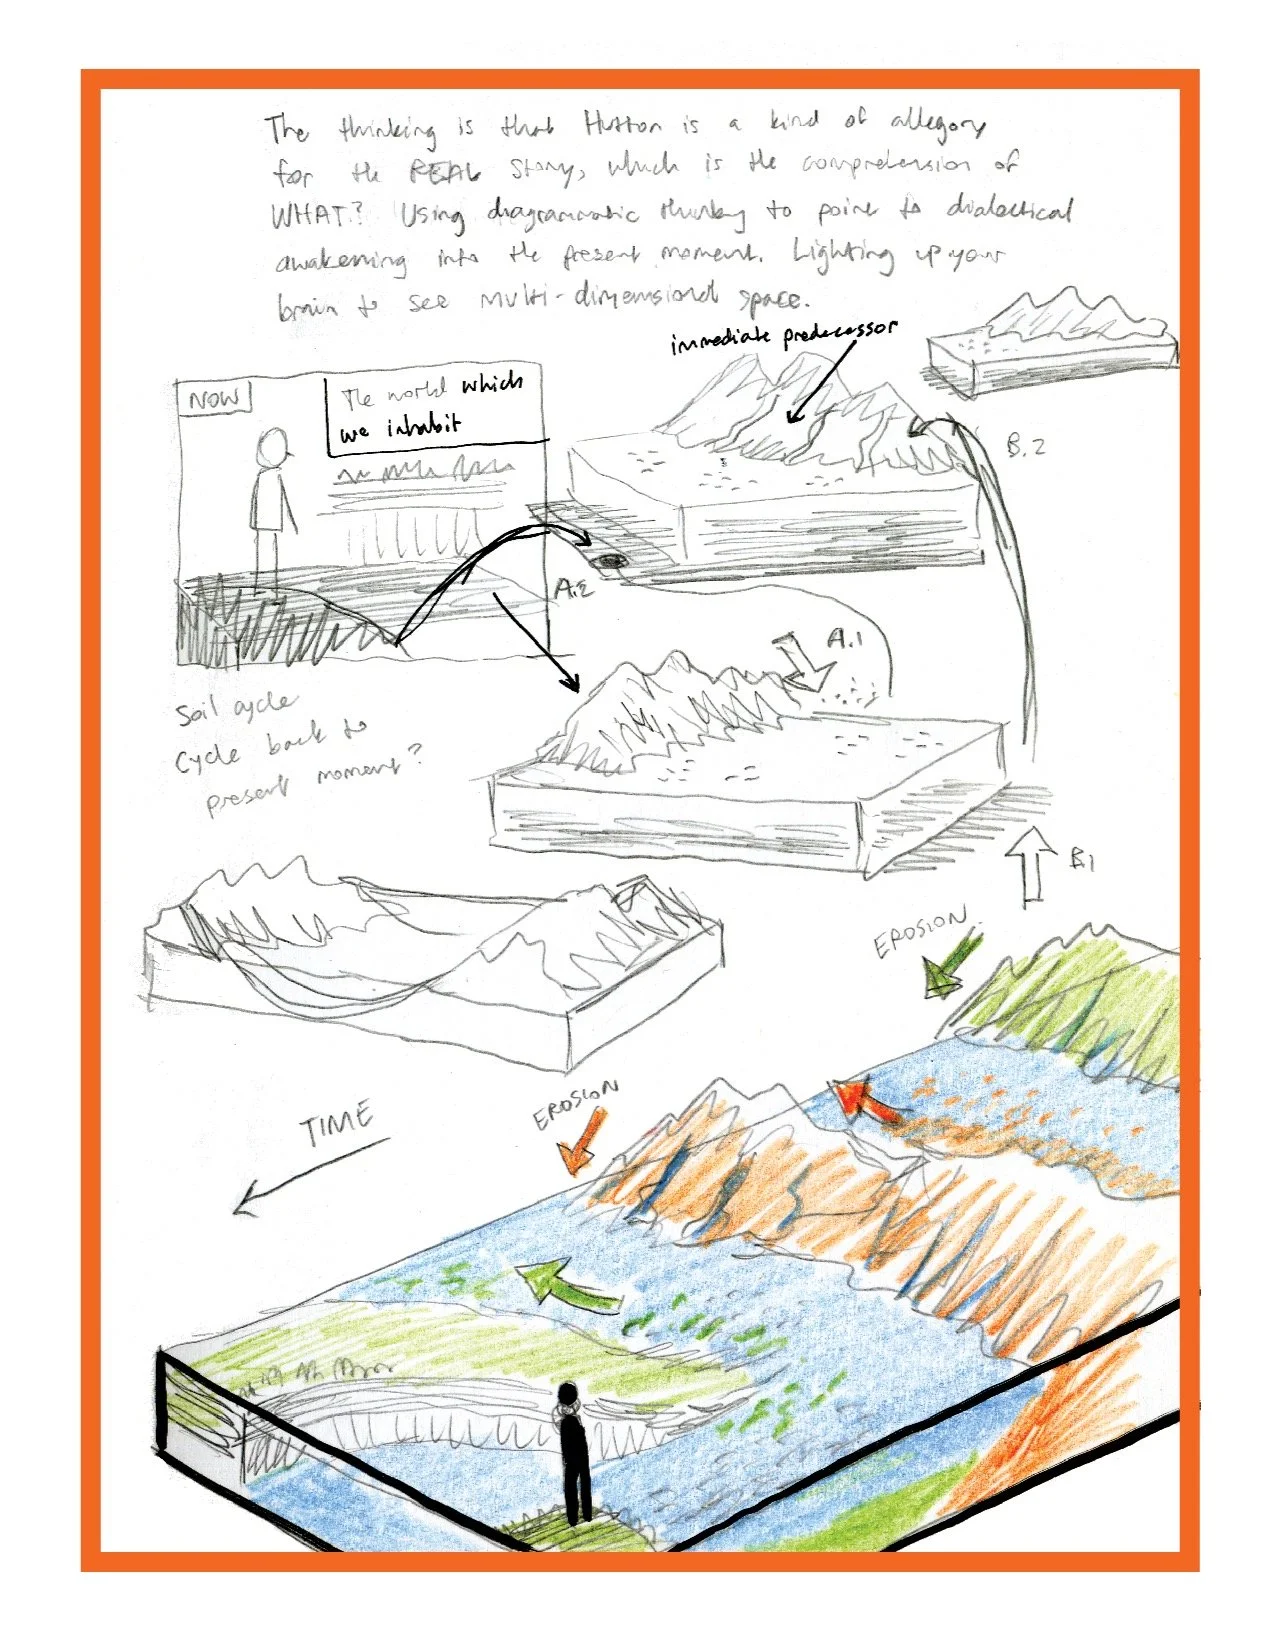 The thinking is that Hutton is a kind of allegory
for the REAL story, which is the comprehension of
WHAT? Using diagrammatic thinking to point to dialectical
awakening into the present moment. Lighting up your
brain to see multi-dimensional space.
immediate predecessor
NOW
The world which
we inhabit
B.2
A.2
A.1
Soil cycle
Cycle back to
present moment?
B.1
EROSION
EROSION
TIME